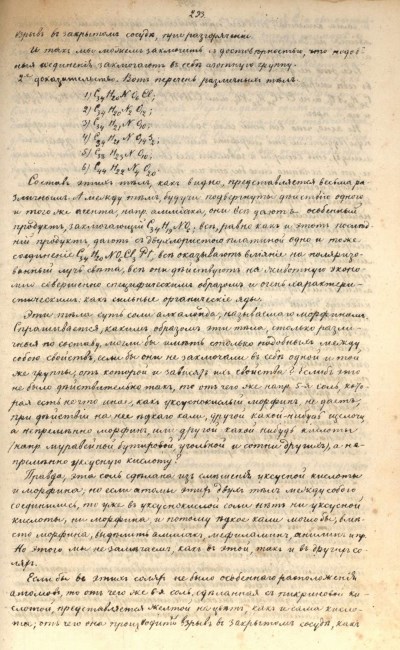 293
взрывъ въ закрытомъ сосудѣ, при разгоряченіи.
И такъ мы можемъ заключить съ достовѣрностью, что подоб-
ныя соединенія заключаютъ въ себѣ азотную группу.
2ое доказательство. Вотъ перечень различныхъ тѣлъ
1)
2)
3)
4)
5)
6)
Составъ этихъ тѣлъ, какъ видно, представляется весьма ра-
зличнымъ. А между тѣмъ, будучи подвергнуты дѣйствію одного
и того же агента, напр. амміака, они всѣ даютъ особенный
продуктъ, заключающій всѣ, равно какъ и этотъ послѣд-
ній продуктъ, даютъ съ двухлористою платиной одно и тоже
соединеніе всѣ оказываютъ вліяніе на поляризо-
ванный лучъ свѣта, всѣ они дѣйствуютъ на животную эконо-
мію совершенно специфическимъ образомъ и очень характери-
стическимъ, какъ сильные органическіе яды.
Эти тѣла суть соли алкалоида, называемаго морфиномъ.
Спрашивается, какимъ образомъ эти тѣла, столько различ-
ныя по составу, могли бы имѣть столько подобныхъ между
собою свойствъ, если бы они не заключали въ себѣ одной и той
же группы, отъ которой и зависятъ ихъ свойства? Еслибъ это
не было дѣйствительно такъ, то отъ чего же напр. 5-я соль, кото-
рая есть ничто иное, какъ уксуснокислый морфинъ, не даетъ,
при дѣйствіи на нее ѣдкаго кали, другой какой-нибудь щелочи,
а непремѣнно морфинъ, или другой какой нибудь кислоты
(напр. муравейной бутировой угольной и сотни другихъ), а не-
премѣнно уксусную кислоту?
Правда, эта соль сдѣлана изъ слитія уксусной кислоты
и морфина, но если атомы этихъ двухъ тѣлъ между собою
соединились, то уже въ уксуснокислой соли нѣтъ ни уксусной
кислоты, ни морфина, и потому ѣдкое кали могло бы, вмѣ-
сто морфина, выдѣлить амміакъ, мефиламинъ, анилинъ и пр.
Но этого мы не замѣчаемъ, какъ въ этой, такъ и въ другихъ со-
ляхъ.
Если бы въ этихъ соляхъ не было особеннаго расположенія
атомовъ, то отъ чего же 6-я соль, сдѣланная съ пикриновой ки-
слотой, представляется желтой на цвѣтъ, какъ и сама кисло-
та; отъ чего она производитъ взрывъ въ закрытомъ сосудѣ, какъ